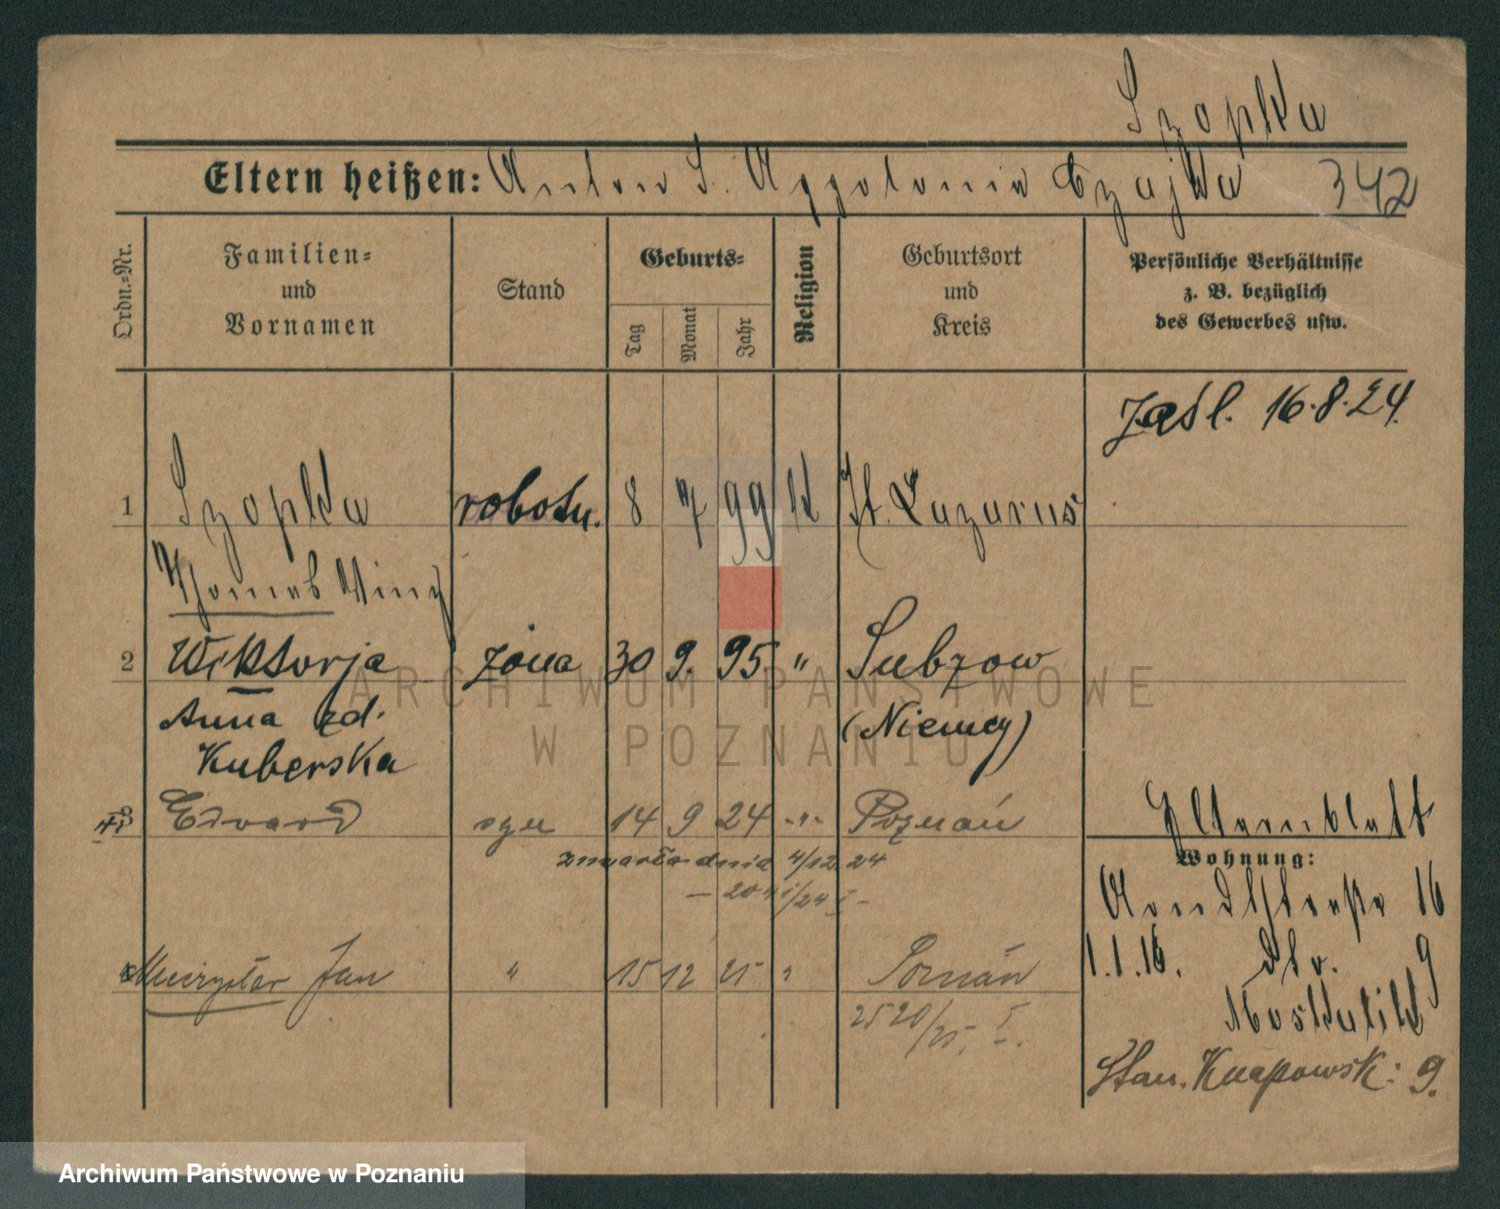 Szopka
Eltern heißen: Anton S. Appolonia Czajka 342
Ordn.-Nr.
Familien-
und
Vornamen
Stand
Geburts-
Tag
Monat
Jahr
Religion
Geburtsort
und
Kreis
Persönliche Verhältnisse
z. B. bezüglich
des Gewerbes usw.
zaśl. 16.8.24.
1 Szopka robotn. 8 7 99 k St. Lazarus
Thomas Vinz
2 Wiktorja żona 30 9. 95 " Subzow
Anna zd. (Niemcy)
Kuberska
3 Edward syn 14 9 24 -"- Poznań
Elternblatt
zmarło dnia 4/12 24
Wohnung:
Arndtstraße 16
Mieczysław Jan " 15 12 25 " Poznań
1.1.16. 9
2520/25. I.
Stan. Knapowski: 9.
ARCHIWUM PAŃSTWOWE
W POZNANIU
Archiwum Państwowe w Poznaniu